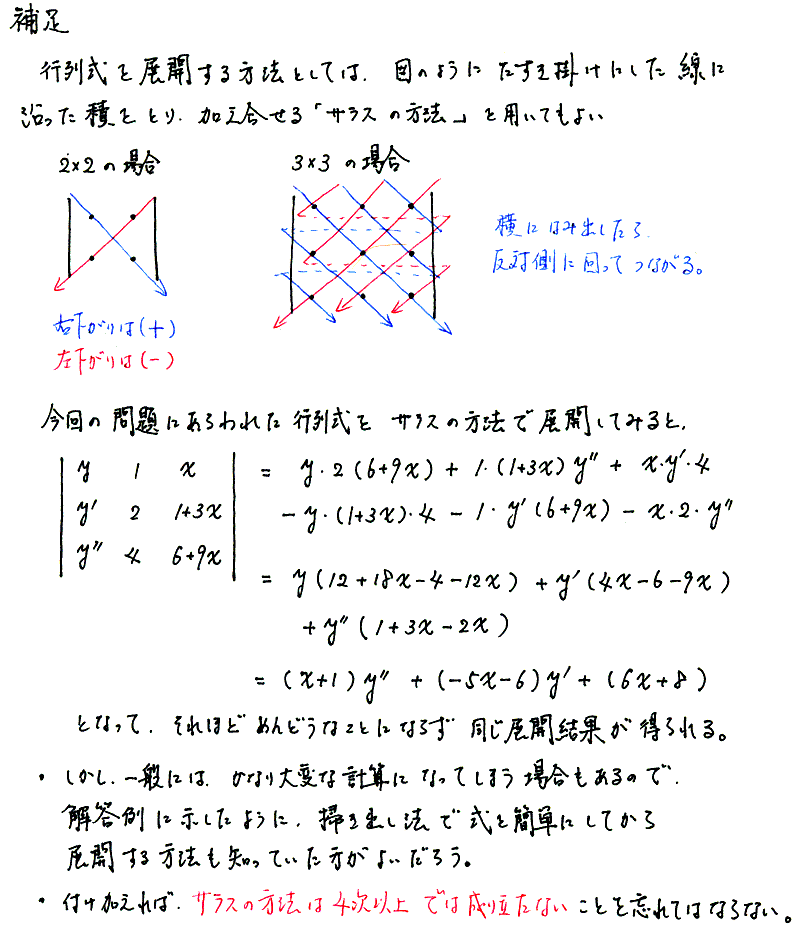 補足
行列式を展開する方法としては、図のようにたすき掛けにした線に
沿った積をとり、加え合せる「サラスの方法」を用いてもよい
2×2の場合
3×3の場合
横にはみ出したら、
反対側に回ってつながる。
右下がりは(+)
左下がりは(−)
今回の問題にあらわれた行列式をサラスの方法で展開してみると、
| y 1 x | = y・2(6+9x) + 1・(1+3x)y″ + x・y′・4
| y′ 2 1+3x | − y・(1+3x)・4 − 1・y′(6+9x) − x・2・y″
| y″ 4 6+9x |
= y(12+18x−4−12x) + y′(4x−6−9x)
+y″(1+3x−2x)
= (x+1)y″ + (−5x−6)y′ + (6x+8)
となって、それほどめんどうなことにならず同じ展開結果が得られる。
・しかし、一般には、かなり大変な計算になってしまう場合もあるので、
解答例に示したように、掃き出し法で式を簡単にしてから
展開する方法も知っていた方がよいだろう。
・付け加えれば、サラスの方法は4次以上では成り立たないことを忘れてはならない。